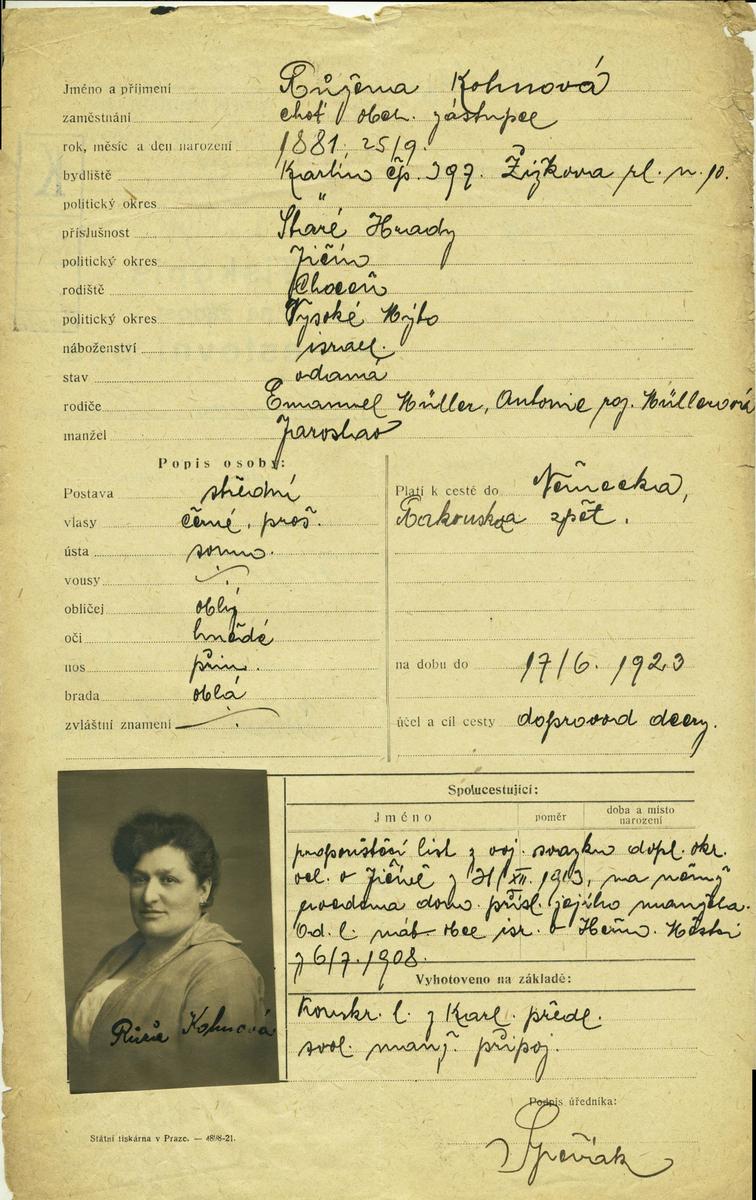 Jméno a příjmení Růžena Kohnová
zaměstnání choť obch. zástupce
rok, měsíc a den narození 1881, 25/9.
bydliště Karlín čp. 397. Žižkova pl. n. 10.
politický okres "
příslušnost Staré Hrady
politický okres Jičín
rodiště Choceň
politický okres Vysoké Mýto
náboženství israel.
stav vdaná
rodiče Emanuel Müller, Antonie roz. Müllerová
manžel Jaroslav
Popis osoby:
Postava střední
vlasy černé, proš.
ústa soum.
vousy
obličej oblý
oči hnědé
nos přim.
brada oblá
zvláštní znamení
Platí k cestě do Německa,
Rakouska zpět.
na dobu do 17/6. 1923
účel a cíl cesty doprovod dcery.
Spolucestující:
Jméno poměr doba a místo
narození
propouštěcí list z voj. svazku dopl. okr.
vel. v Jičíně z 31/XII. 1913, na němž
uvedena dom. přísl. jejího manžela.
Od. l. náb. obce isr. v Heřm. Městci
z 6/7. 1908.
Vyhotoveno na základě:
konskr. l. z Karl. předl.
svol. manž. připoj.
Růža Kohnová
Podpis úředníka:
Státní tiskárna v Praze. — 4898-21.